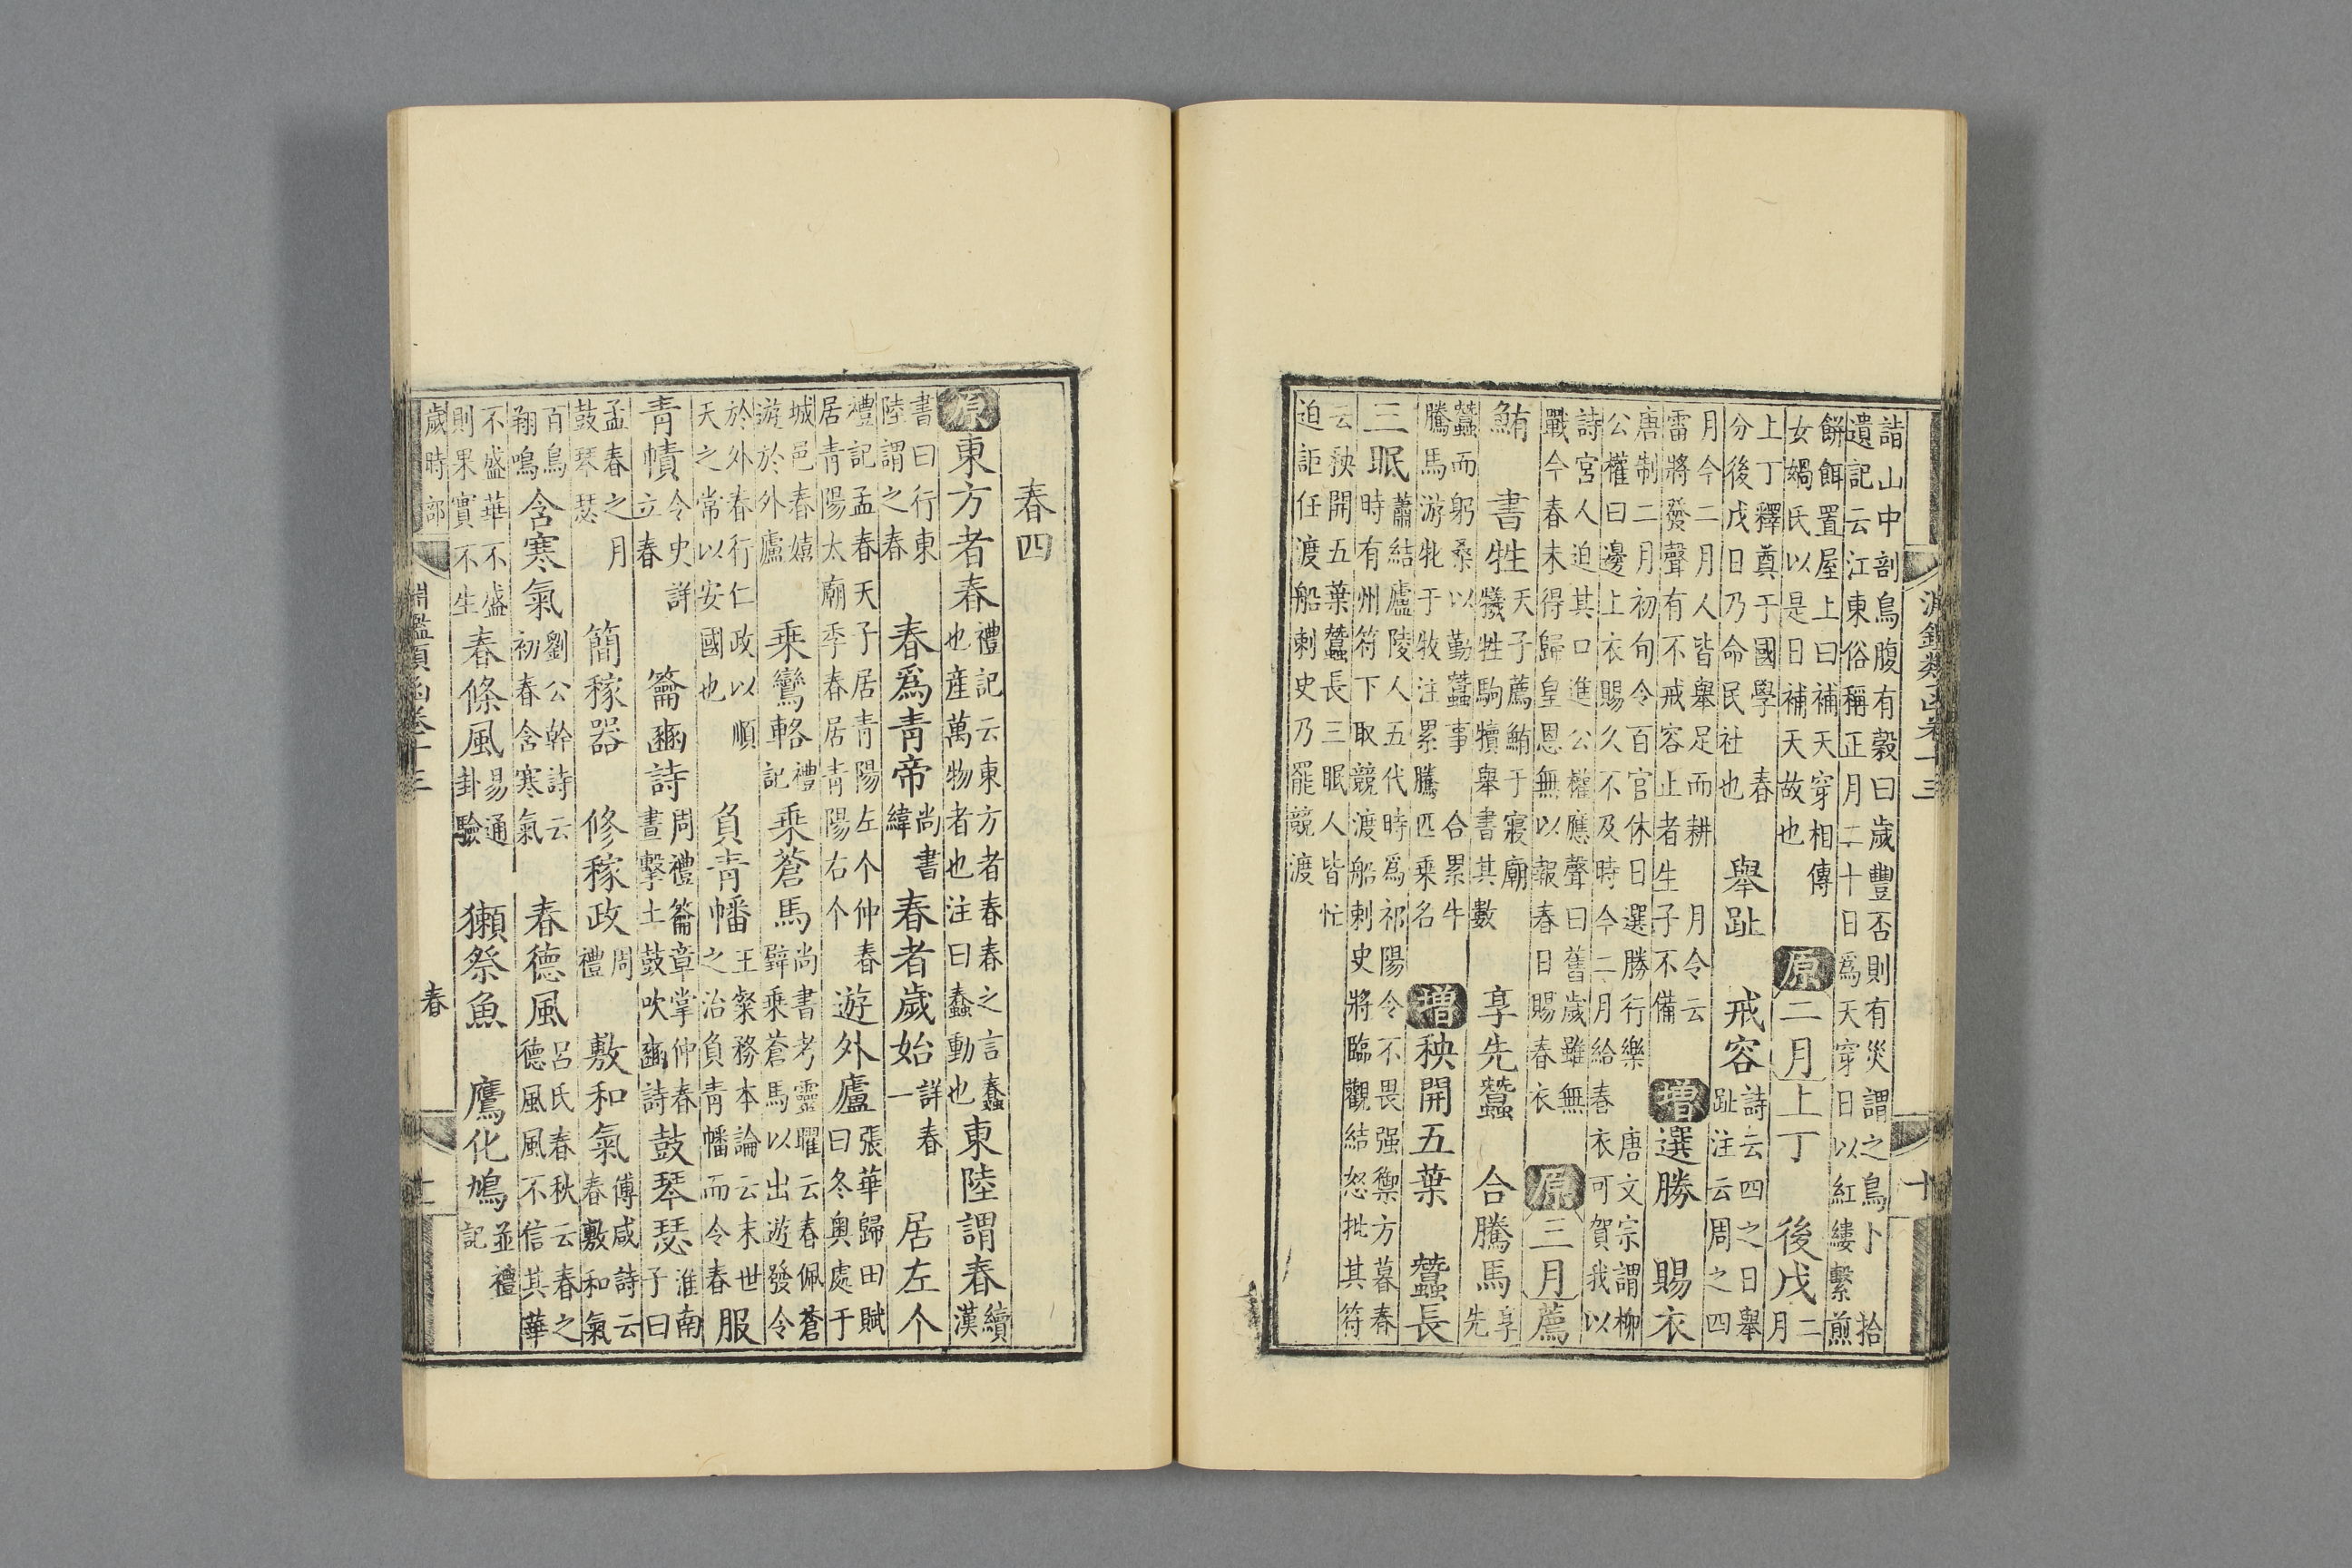 淵鑑類函卷十三 十
詣山中剖鳥腹有穀曰歲豐否則有災謂之鳥卜 拾
遺記云江東俗稱正月二十日為天穿日以紅縷繫煎
餅餌置屋上曰補天穿相傳女媧氏以是日補天故也 原二月上丁 後戊二月
上丁釋奠于國學 春分後戊日乃命民社也 舉趾 戒容詩云四之日舉趾注云周之四
月令二月人皆舉足而耕 月令云雷將發聲有不戒容止者生子不備 增選勝 賜衣
唐制二月初旬令百官休日選勝行樂 唐文宗謂柳
公權曰邊上衣賜久不及時今二月給春衣可賀我以
詩宮人迫其口進公權應聲曰舊歲雖無戰今春未得歸皇恩無以報春日賜春衣 原三月薦
鮪 書牲天子薦鮪于寢廟犧牲駒犢舉書其數 享先蠶 合騰馬享先
蠶而躬桑以勤蠶事 合累牛騰馬游牝于牧注累騰匹乘名 增秧開五葉 蠶長
三眠蕭結廬陵人五代時為祁陽令不畏强禦方暮春時有州符下取競渡船刺史將臨觀結怒批其符
云秧開五葉蠶長三眠人皆忙迫詎任渡船刺史乃罷競渡
春四
原東方者春禮記云東方者春春之言蠢也産萬物者也注曰蠢動也東陸謂春續漢
書曰行東陸謂之春 春爲青帝尚書緯 春者歲始詳春一 居左个
禮記孟春天子居青陽左个仲春居青陽太廟季春居青陽右个 遊外廬張華歸田賦曰冬奧處于
城邑春嬉游於外廬 乘鸞輅禮記 乘蒼馬尚書考靈曜云春佩蒼璧乘蒼馬以出遊發令
於外春行仁政以順天之常以安國也 負青幡王粲務本論云末世之治負青幡而令春 服
青幘令史詳立春 籥豳詩周禮籥章掌仲春晝擊土鼓吹豳詩 鼓琴瑟淮南子曰
孟春之月鼓琴瑟 簡稼器 修稼政周禮 敷和氣傅咸詩云春敷和氣
百鳥翔鳴 含寒氣劉公幹詩云初春含寒氣 春德風呂氏春秋云春之德風風不信其華
不盛華不盛則果實不生 春條風易通卦驗 獺祭魚 鷹化鳩並禮記
歲時部 淵鑑類函卷十三 春